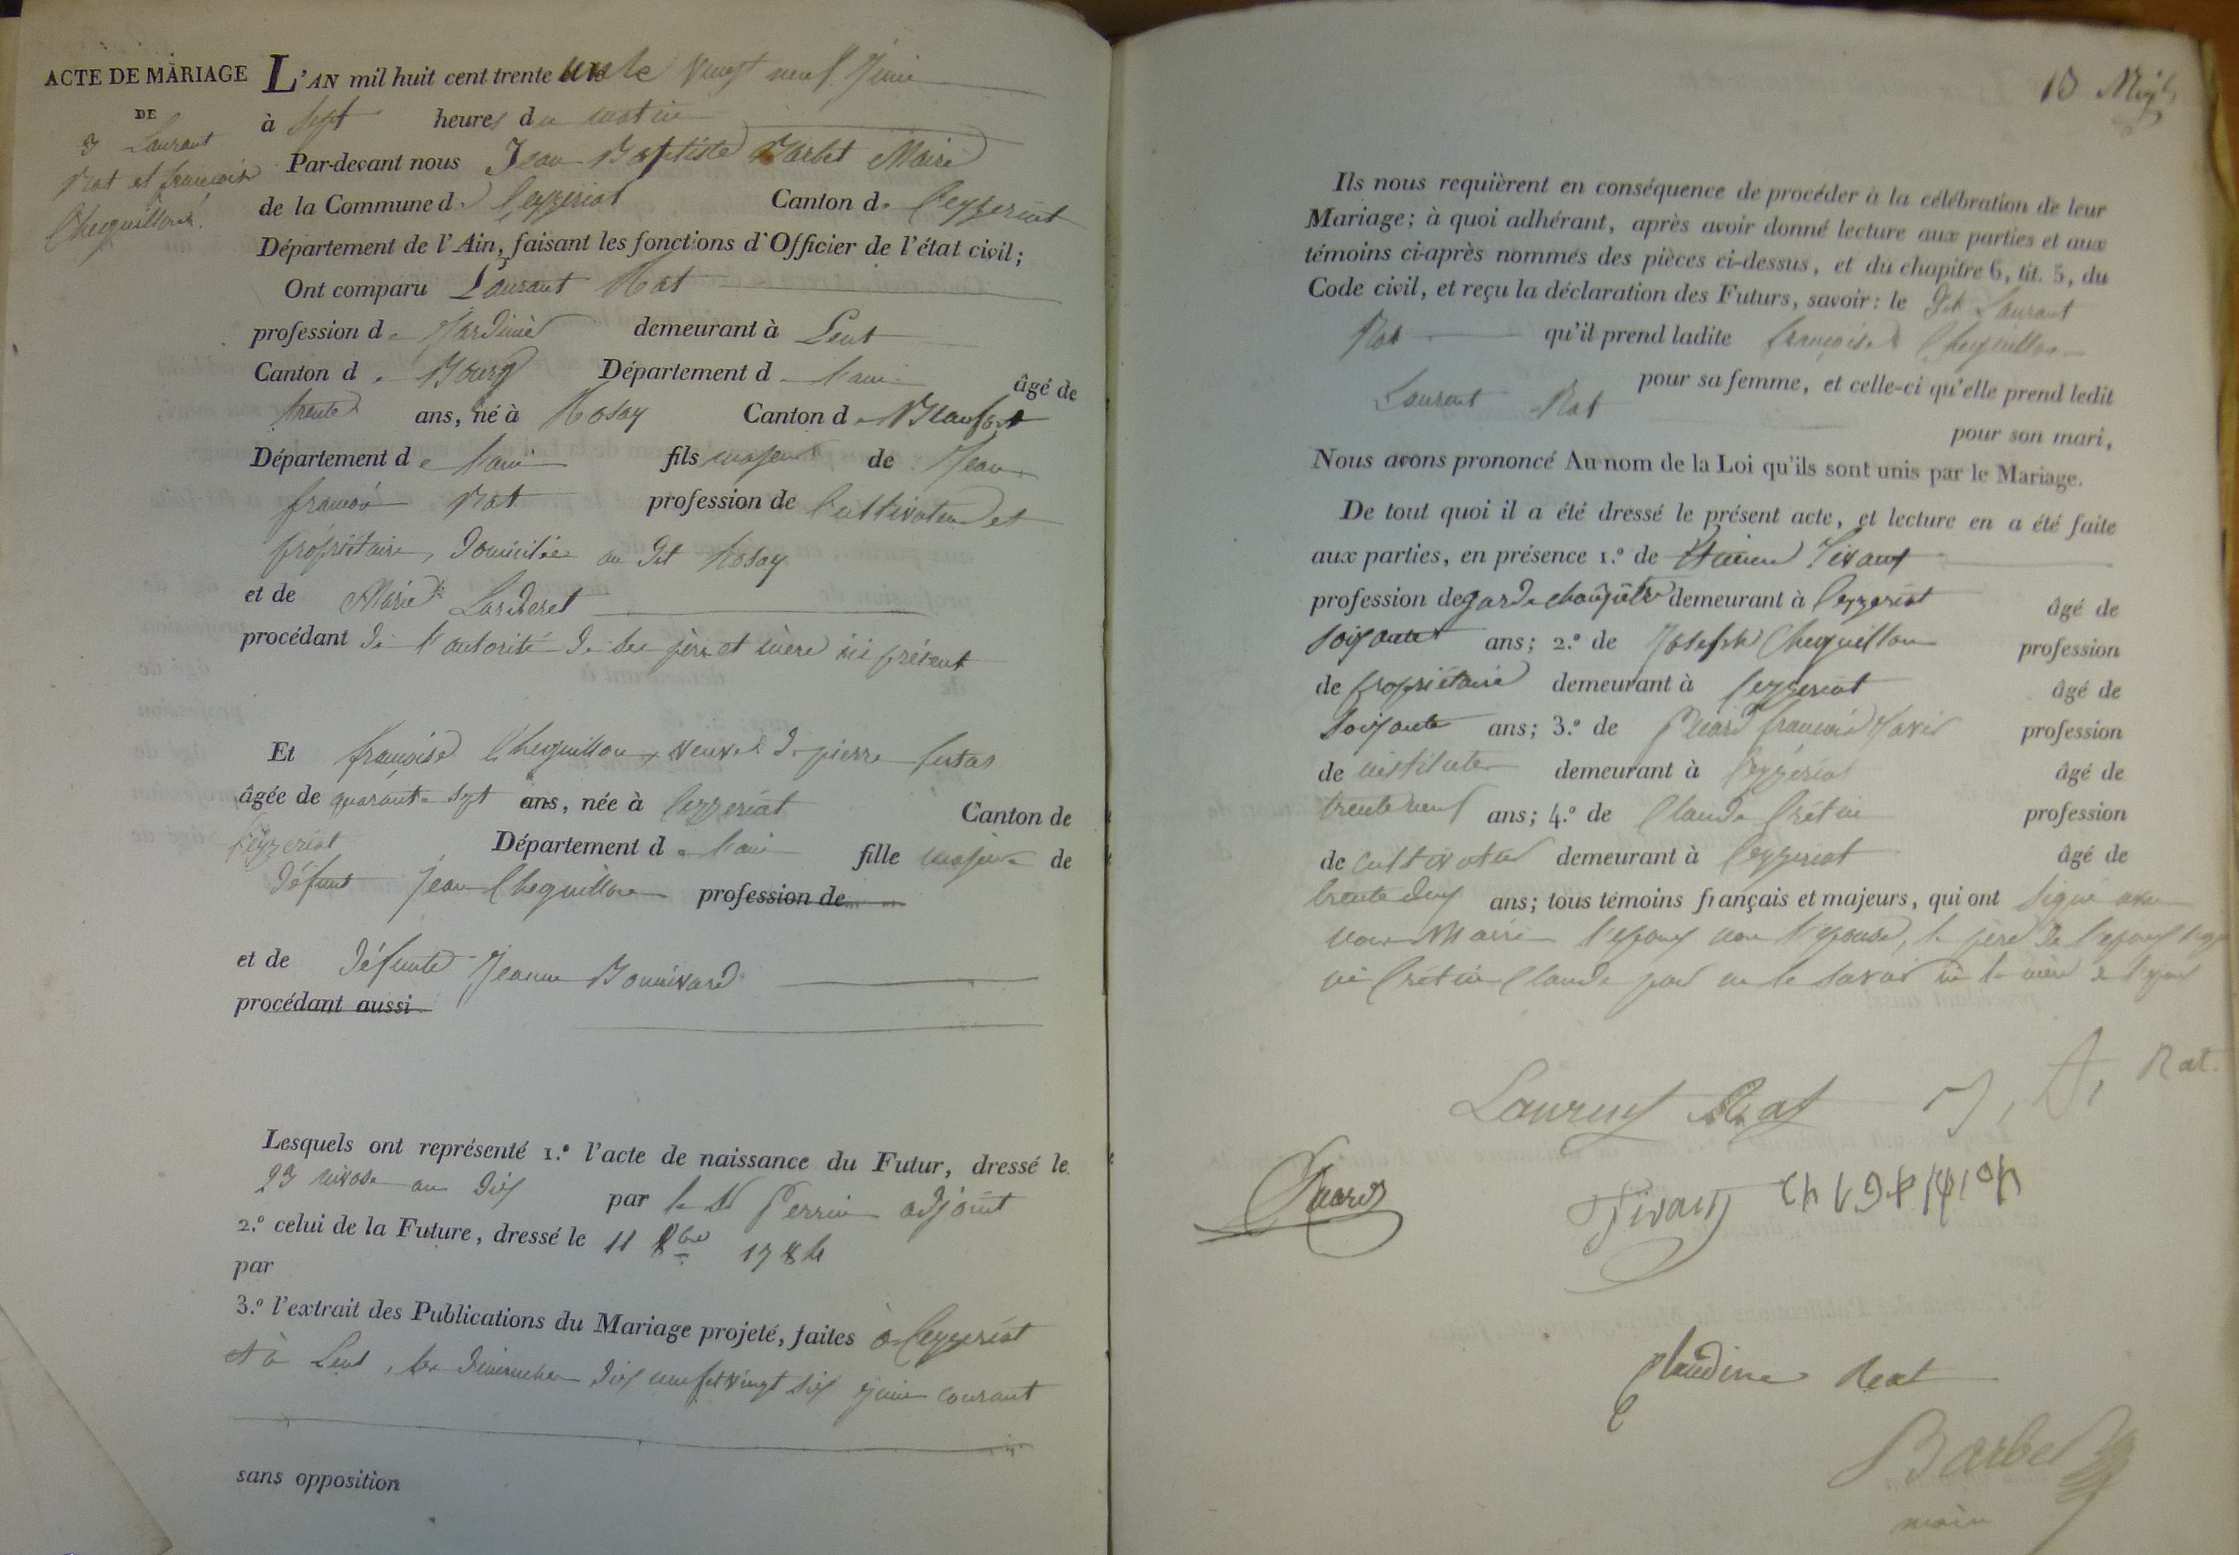 ACTE DE MARIAGE
DE
3 Laurant
Rat et françoise
Chequillon
L'AN mil huit cent trente un le vingt neuf Juin
à sept heures du matin
Par-devant nous Jean Baptiste Barbet Maire
de la Commune de Ceyzeriat Canton de Ceyzeriat
Département de l'Ain, faisant les fonctions d'Officier de l'état civil;
Ont comparu Laurant Rat
profession de Jardinie demeurant à Lent
Canton de Bourg Département de l'ain âgé de
trente ans, né à Rosay Canton de Beaufort
Département de l'ain fils majeur de Jean
françois Rat profession de Cultivateur et
propriétaire, domicilié au dit Rosay
et de Marie Larderet
procédant de l'autorité de ses père et mère ici présent
Et françoise Chequillon veuve de pierre
âgée de quarante sept ans, née à Ceyzeriat Canton de
Ceyzeriat Département de l'ain fille majeure de
défunt Jean Chequillon profession de
et de défunte Jeanne Bonnivard
procédant aussi
Lesquels ont représenté 1.º l'acte de naissance du Futur, dressé le
23 nivose an dix par le Sr Perrin adjoint
2.º celui de la Future, dressé le 11 8bre 1784
par
3.º l'extrait des Publications du Mariage projeté, faites à Ceyzeriat
et à Lent, les dimanches dix neuf et vingt six juin courant
sans opposition
13
Ils nous requièrent en conséquence de procéder à la célébration de leur
Mariage; à quoi adhérant, après avoir donné lecture aux parties et aux
témoins ci-après nommés des pièces ci-dessus, et du chapitre 6, tit. 5, du
Code civil, et reçu la déclaration des Futurs, savoir: le dit Laurant
Rat qu'il prend ladite françoise Chequillon
pour sa femme, et celle-ci qu'elle prend ledit
Laurant Rat
pour son mari,
Nous avons prononcé Au nom de la Loi qu'ils sont unis par le Mariage.
De tout quoi il a été dressé le présent acte, et lecture en a été faite
aux parties, en présence 1.º de Tivant
profession de garde champêtre demeurant à Ceyzeriat âgé de
soixante ans; 2.º de Joseph Chequillon profession
de propriétaire demeurant à Ceyzeriat âgé de
soixante ans; 3.º de françois profession
de instituteur demeurant à Ceyzériat âgé de
trente neuf ans; 4.º de Claude Crétin profession
de cultivateur demeurant à Ceyzeriat âgé de
trente deux ans; tous témoins français et majeurs, qui ont signé avec
nous Maire l'epoux non l'epouse, le père de l'epoux
ni Crétin Claude pour ne le savoir ni la mère de l'epoux
Laurent Rat J, f, Rat.
Tivant
Claudine Reat
Barbet
maire